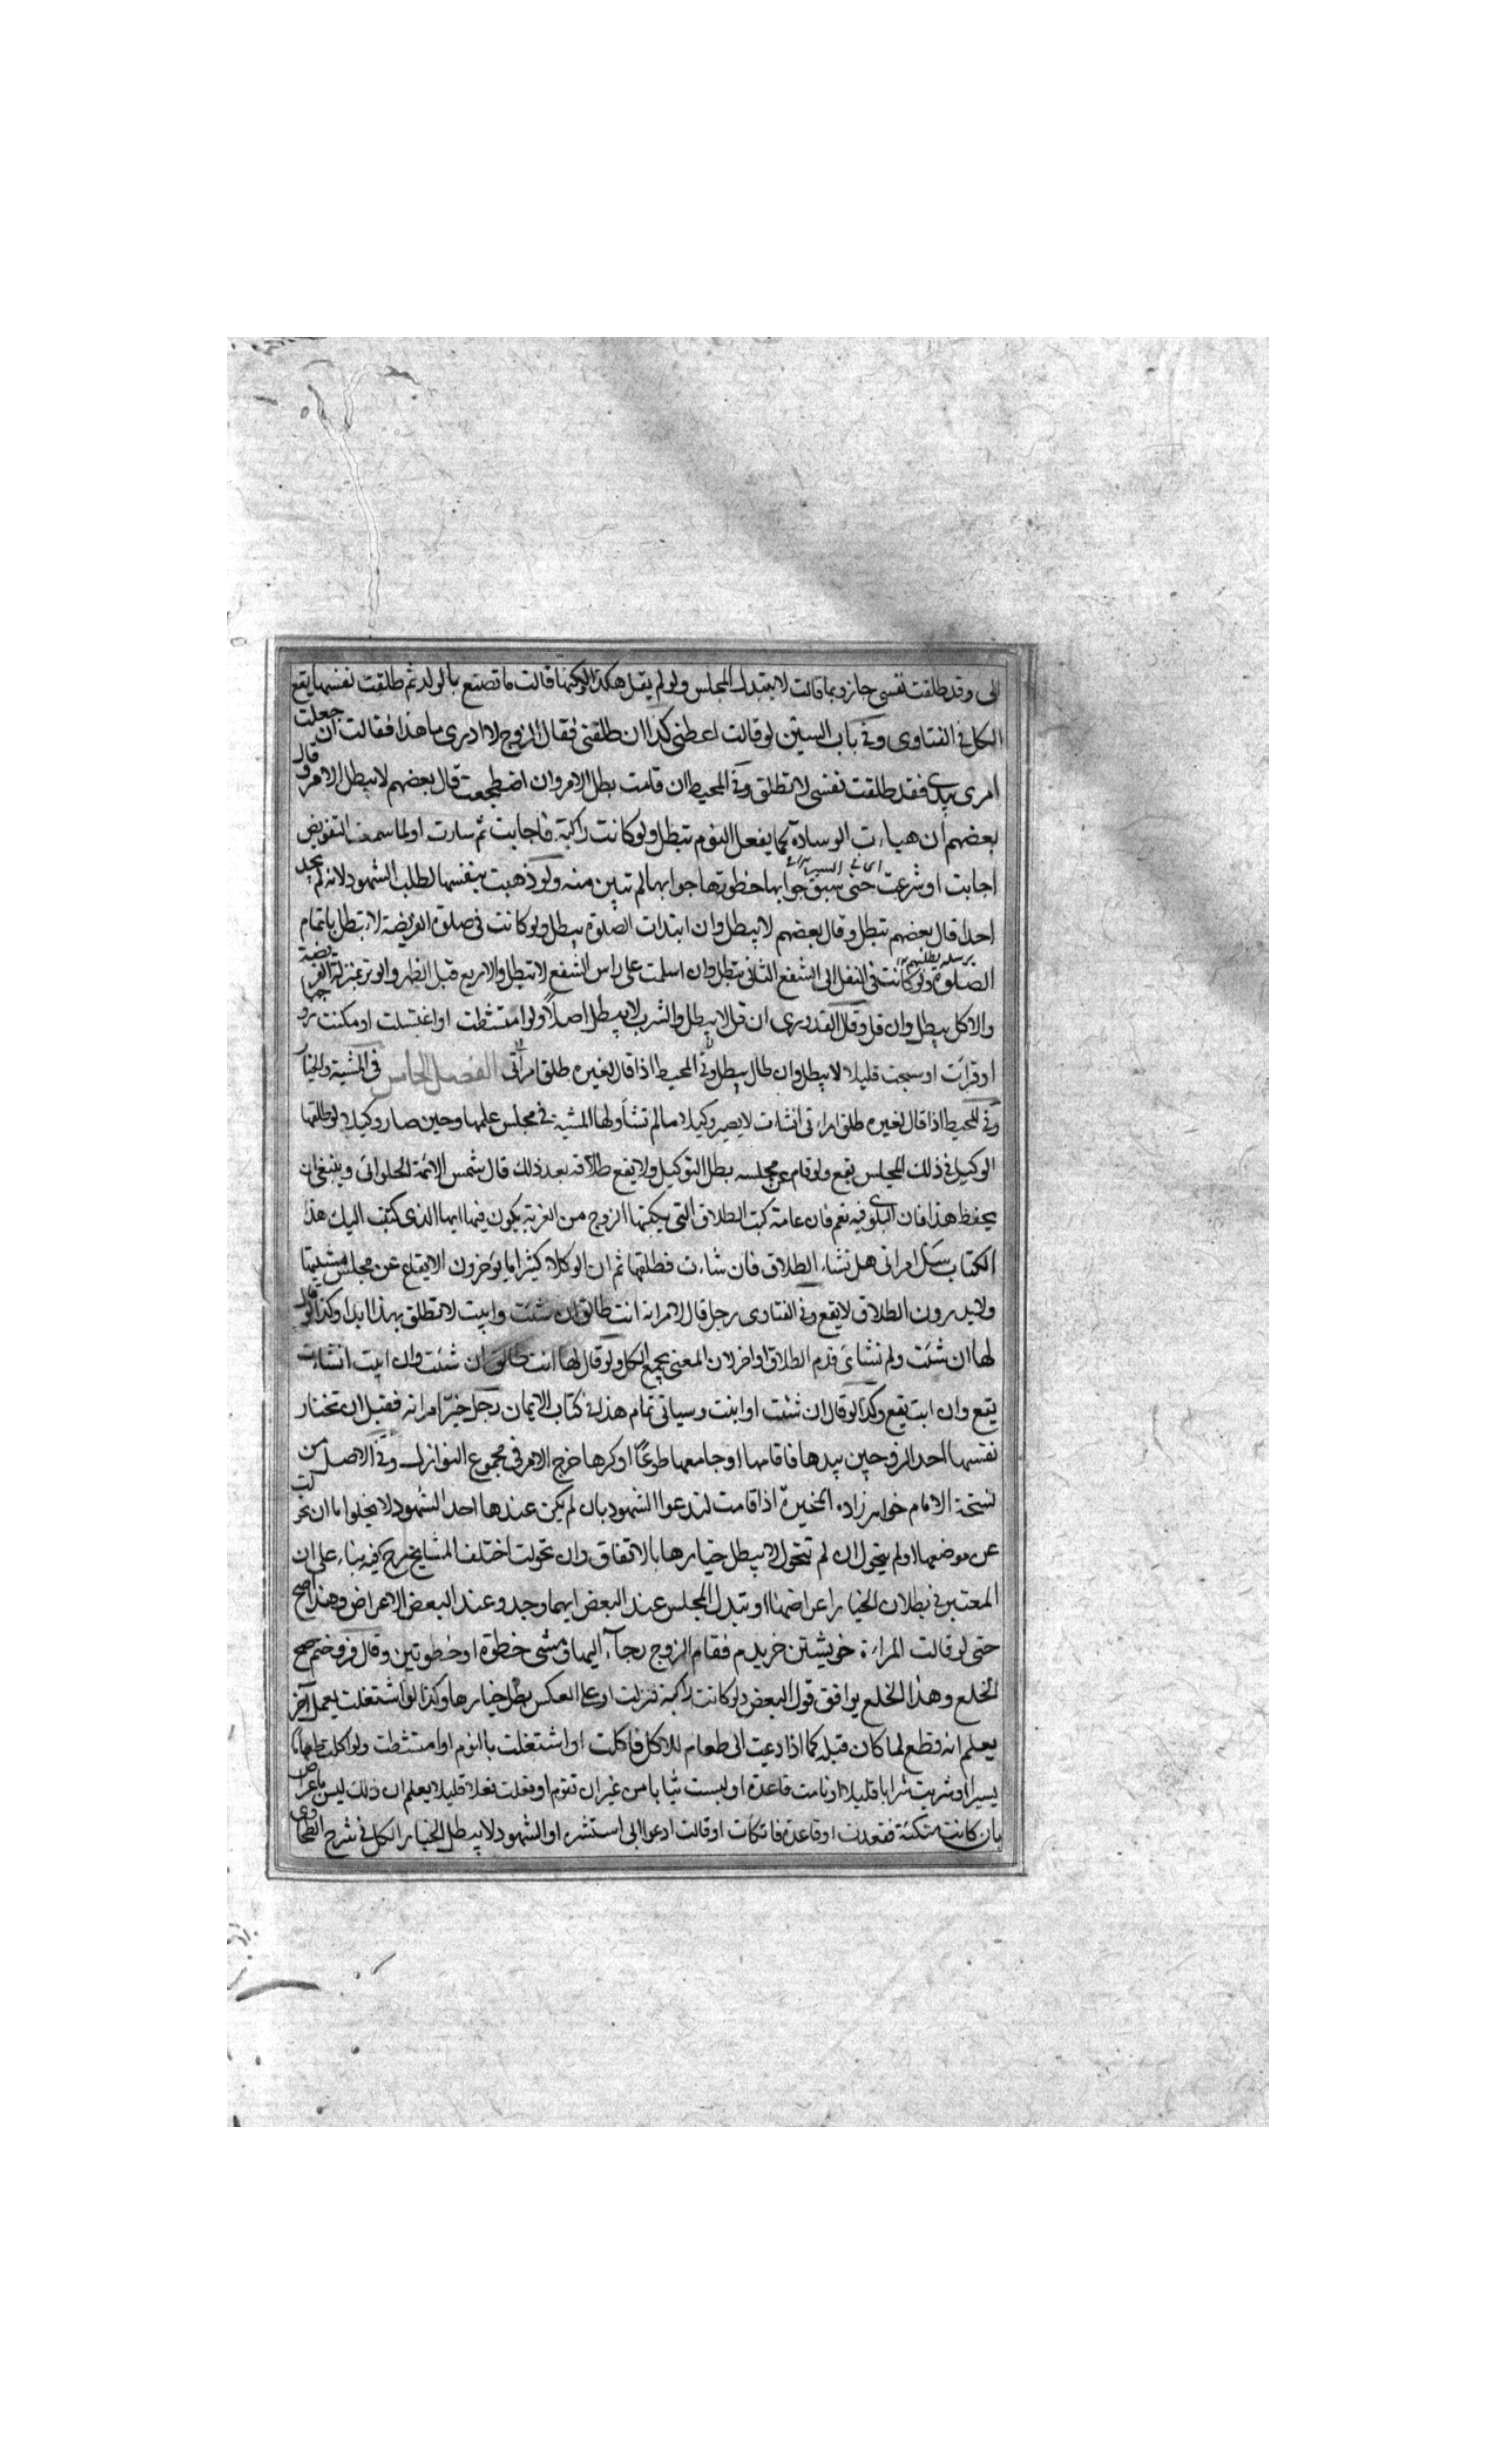 الى وقد طلقت نفسى جاز وبما قالت لا يتبدل المجلس ولو لم يقل هكذا لكنها قالت ما تصنع بالولد ثم طلقت نفسها يقع
الكل فى الفتاوى وفى باب السين لو قالت اعطنى كذا ان طلقتنى فقال الزوج لا ادرى ما هذا فقالت ان جعلت
امرى بيدى فقد طلقت نفسى لا تطلق وفى المحيط ان قامت بطل الامر وان اضطجعت قال بعضهم لا يبطل الامر وقال
بعضهم ان هياءت الوسادة كما يفعل النوم تبطل ولو كانت راكبة فاجابت ثم سارت اولما سمعت التفويض
اجابت او شرعت حتى سبق جوابها خطوتها جوابها لم تبين منه ولو ذهبت بنفسها لطلب الشهود لانه لم يجد
احدا قال بعضهم تبطل وقال بعضهم لا يبطل وان ابتدات الصلوة يبطل ولو كانت فى صلوة الفريضة لا تبطل باتمام
الصلوة ولو كانت فى النفل الى الشفع الثانى تبطل وان سلمت على راس الشفع لا تبطل والاربع قبل الظهر والوتر بمنزلة الفريضة
والاكل يبطل وان قل وقال القدورى ان قل لا يبطل والشرب لا يبطل اصلاً ولو امتشطت او اغتسلت او مكنت زوجها
او قرأت او سبحت قليلا لا يبطل وان طال يبطل وفى المحيط اذا قال لغيره طلق امرأتى الفصل الخامس فى المشية والخيار
وفى المحيط اذا قال لغيره طلق امراءتى انشات لا يصير وكيلا ما لم تشأ ولها المشية فى مجلس علمها وحين صار وكيلا لو طلقها
الوكيل فى ذلك المجلس يقع ولو قام عن مجلسه بطل التوكيل ولا يقع طلاقه بعد ذلك قال شمس الائمة الحلوانى وينبغى ان
يحفظ هذا فان البلوى فيه نعم فان عامة كتب الطلاق التى يكتبها الزوج من الغربة يكون فيها ايها الذى كتبت اليك هذا
الكتاب سئل امراتى هل تشاء الطلاق فان شاءت فطلقها ثم ان الوكلاء كثيرا ما يؤخرون الايقاع عن مجلس مشيتها
ولا يدرون الطلاق لا يقع وفى الفتاوى رجل قال لامراته انت طالق ان شئت وابيت لا تطلق بهذا ابدا وكذا لو قال
لها ان شئت ولم تشائ قدم الطلاق او اخر لان المعنى يجمع الكل ولو قال لها انت طالق ان شئت وان ابيت انشاءت
يقع وان ابت يقع وكذا لو قال ان شئت او ابيت وسياتى تمام هذا فى كتاب الايمان رجل خير امراته فقبل ان تختار
نفسها احد الزوجين بيدها فاقامها او جامعها طوعًا او كرها خرج الامر فى مجموع النوازل وفى الاصل من
نسخة الامام خواهر زاده المخيرة اذا قامت لتدعوا الشهود بان لم يكن عندها احد الشهود لا يخلوا ما ان تحولت
عن موضعها او لم يتحول ان لم تتحول لا يبطل خيارها بالاتفاق وان تحولت اختلف المشايخ فيه بناء على ان
المعتبر فى بطلان الخيار اعراضها او تبدل المجلس عند البعض ايهما وجد وعند البعض الاعراض وهذا اصح
حتى لو قالت المراءة خويشتن خريدم فقام الزوج رجآء اليها ومشى خطوة او خطوتين وقال فروختم صح
الخلع وهذا الخلع يوافق قول البعض ولو كانت راكبة فنزلت او على العكس بطل خيارها وكذا لو اشتغلت بعمل آخر
يعلم انه قطع لما كان قبله كما اذا دعيت الى طعام للاكل فاكلت او اشتغلت بالنوم او امتشطت ولو اكلت طعاما
يسيرا او شربت شرابا قليلا او نامت قاعدة او لبست ثيابا من غير ان تقوم او فعلت فعلا قليلا يعلم ان ذلك ليس باعراض
بان كانت متكئة فقعدت او قاعدة فاتكات او قالت ادعوا ابى استشره او الشهود لا يبطل الخيار الكل فى شرح الطحاوى